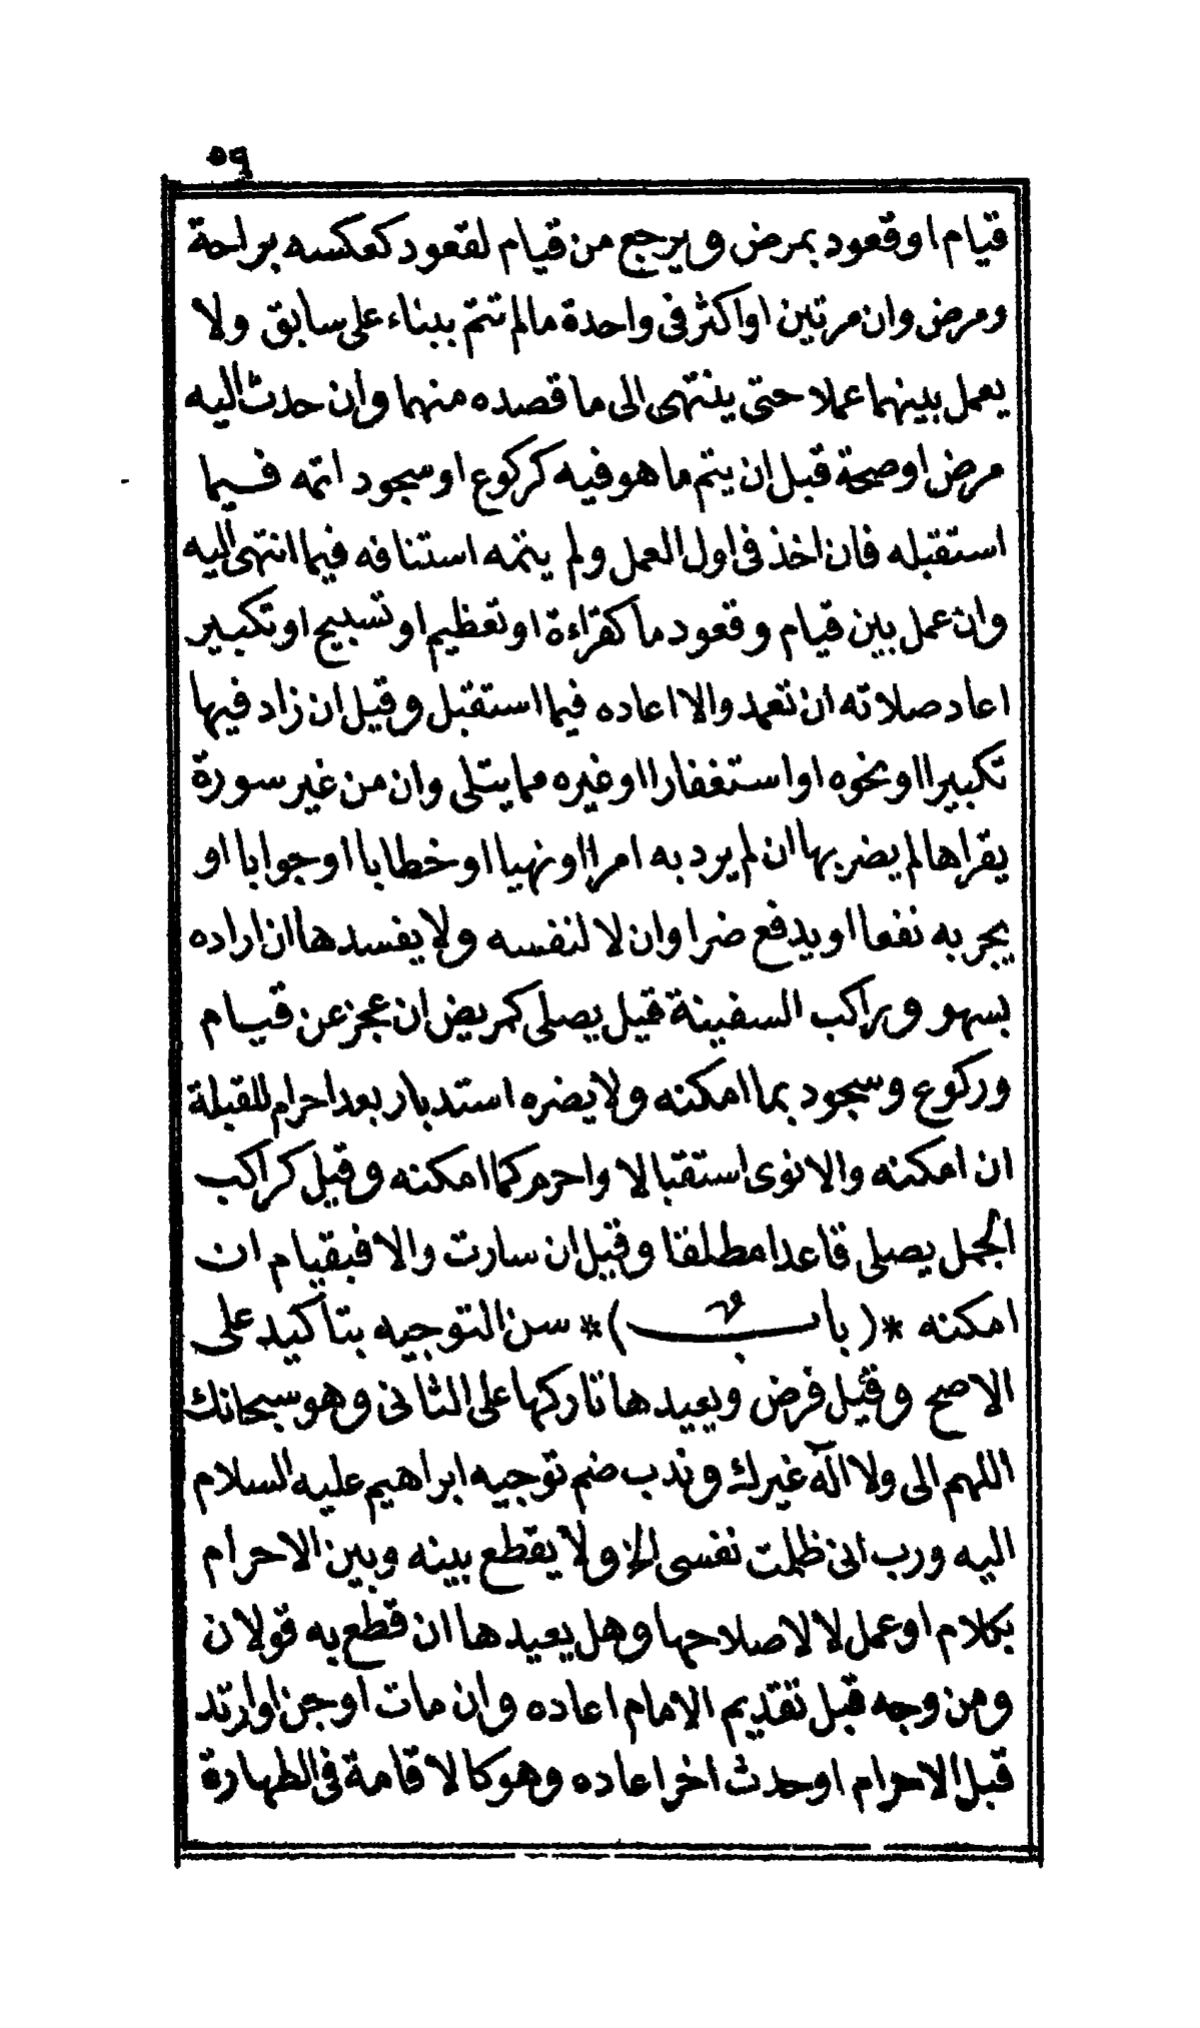 ٥٩
قيام او قعود بمرض ويرجع من قيام لقعود كعكسه براحة
ومرض وان مرتين او اكثر فى واحدة مالم تتم ببناء على سابق ولا
يعمل بينهما عملا حتى ينتهى الى ما قصده منهما وان حدث اليه
مرض او صحة قبل ان يتم ما هو فيه كركوع او سجود اتمه فيما
استقبله فان اخذ فى اول العمل ولم يتمه استنافه فيما انتهى اليه
وان عمل بين قيام وقعود ما كقراءة او تعظيم او تسبيح او تكبير
اعاد صلاته ان تعمد والا اعاده فيما استقبل وقيل ان زاد فيها
تكبيرا او نحوه او استغفارا او غيره مما يتلى وان من غير سورة
يقراها لم يضر بها ان لم يرد به امرا او نهيا او خطابا او جوابا او
يجر به نفعا او يدفع ضرا وان لا لنفسه ولا يفسدها ان اراده
بسهو وراكب السفينة قيل يصلى كمريض ان عجز عن قيام
وركوع وسجود بما امكنه ولا يضره استدبار بعد احرام للقبلة
ان امكنه والا نوى استقبالا واحرم كما امكنه وقيل كراكب
الجمل يصلى قاعدا مطلقا وقيل ان سارت والا فبقيام ان
امكنه *(باب)* سن التوجيه بتاكيد على
الاصح وقيل فرض ويعيدها تاركها على الثانى وهو سبحانك
اللهم الى ولا اله غيرك وندب ضم توجيه ابراهيم عليه السلام
اليه ورب انى ظلمت نفسى الخ ولا يقطع بينه وبين الاحرام
بكلام او عمل لا لاصلاحها وهل يعيدها ان قطع به قولان
ومن وجه قبل تقديم الامام اعاده وان مات او جن او ارتد
قبل الاحرام او حدث اخر اعاده وهو كالاقامة فى الطهارة